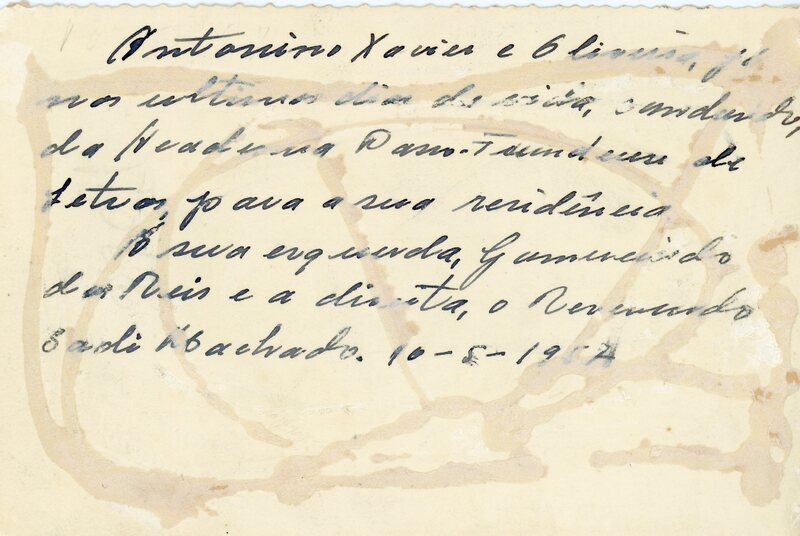 Antonino Xavier e Oliveira, já
nos ultimos dias de vida, conduzido,
da Academia Passo-Fundense de
Letras, para a sua residência
À sua esquerda, Gomercindo
dos Reis e a direita, o Reverendo
Sadi Machado. 10-5-1957